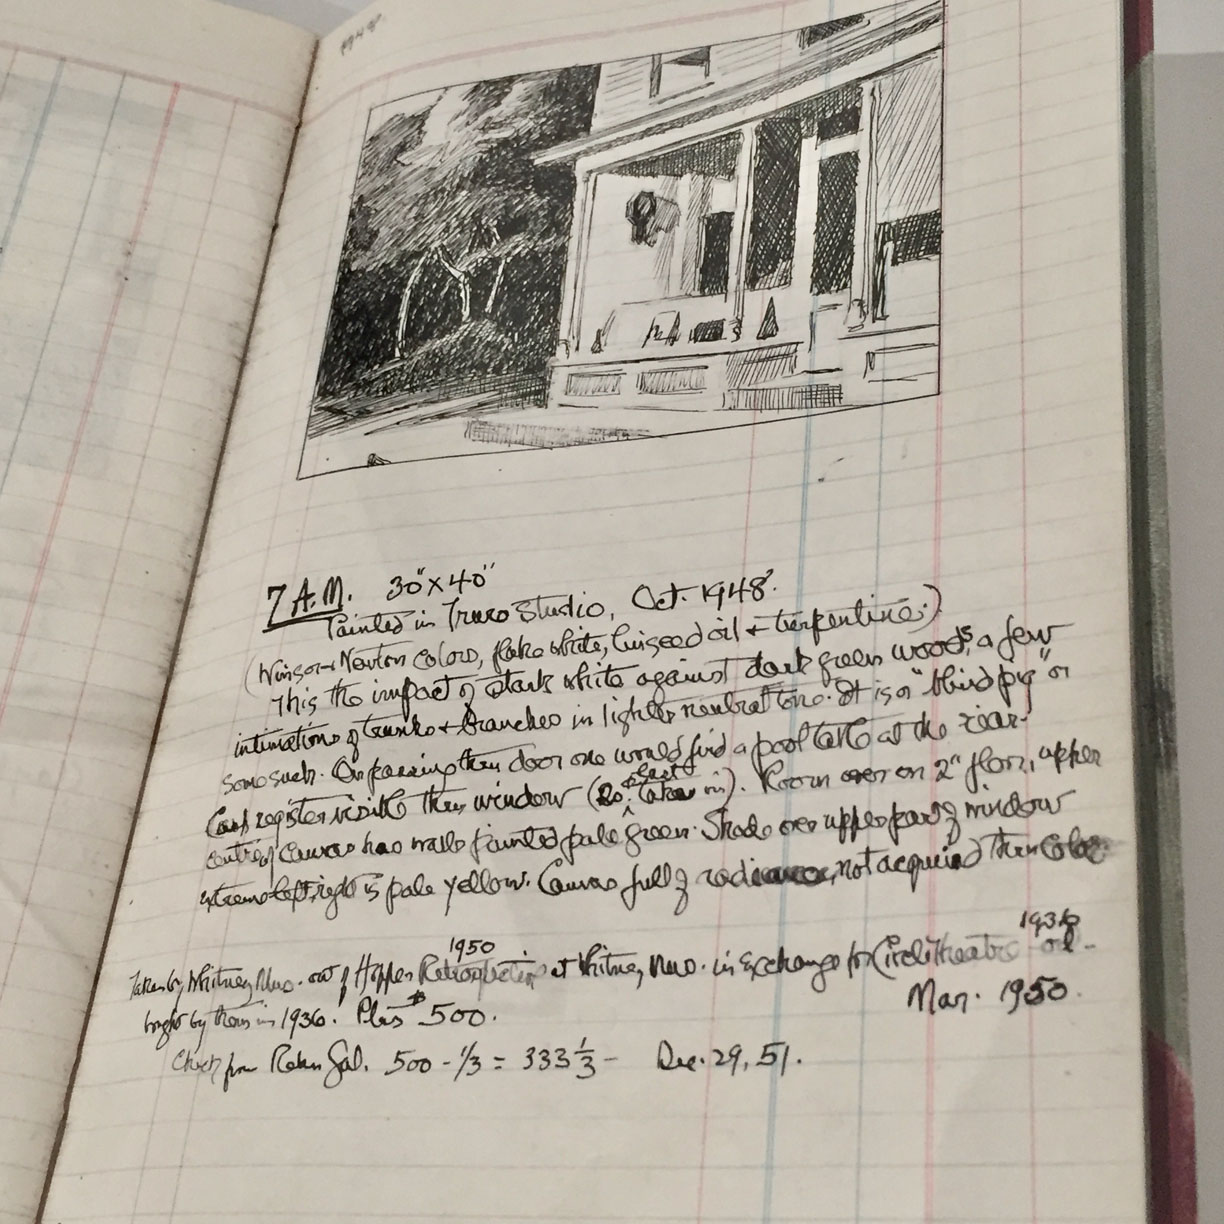 1948
7 A.M. 30" x 40"
Painted in Truro Studio, Oct. 1948.
(Winsor & Newton colors, flake white, linseed oil & turpentine.)
This the impact of stark white against dark green woods, a few
intimations of trunks & branches in lighter neutral tone. It is a "blind pig" or
some such. On passing thru door one would find a pool table at the rear.
Cash register visible thru window (to take in). Room over on 2" floor, upper
centre of canvas has walls painted pale green. Shade over upper part of window
extreme right is pale yellow. Canvas full of radiance, not acquired thru color
Taken by Whitney Mus. out of Hopper Retrospective 1950 at Whitney Mus. in exchange for Circle Theatre 1936 oil -
bought by them in 1936. Plus $500. Mar. 1950.
Check from Rehn Gal. 500 - 1/3 = 333 1/3 - Dec. 29, 51.